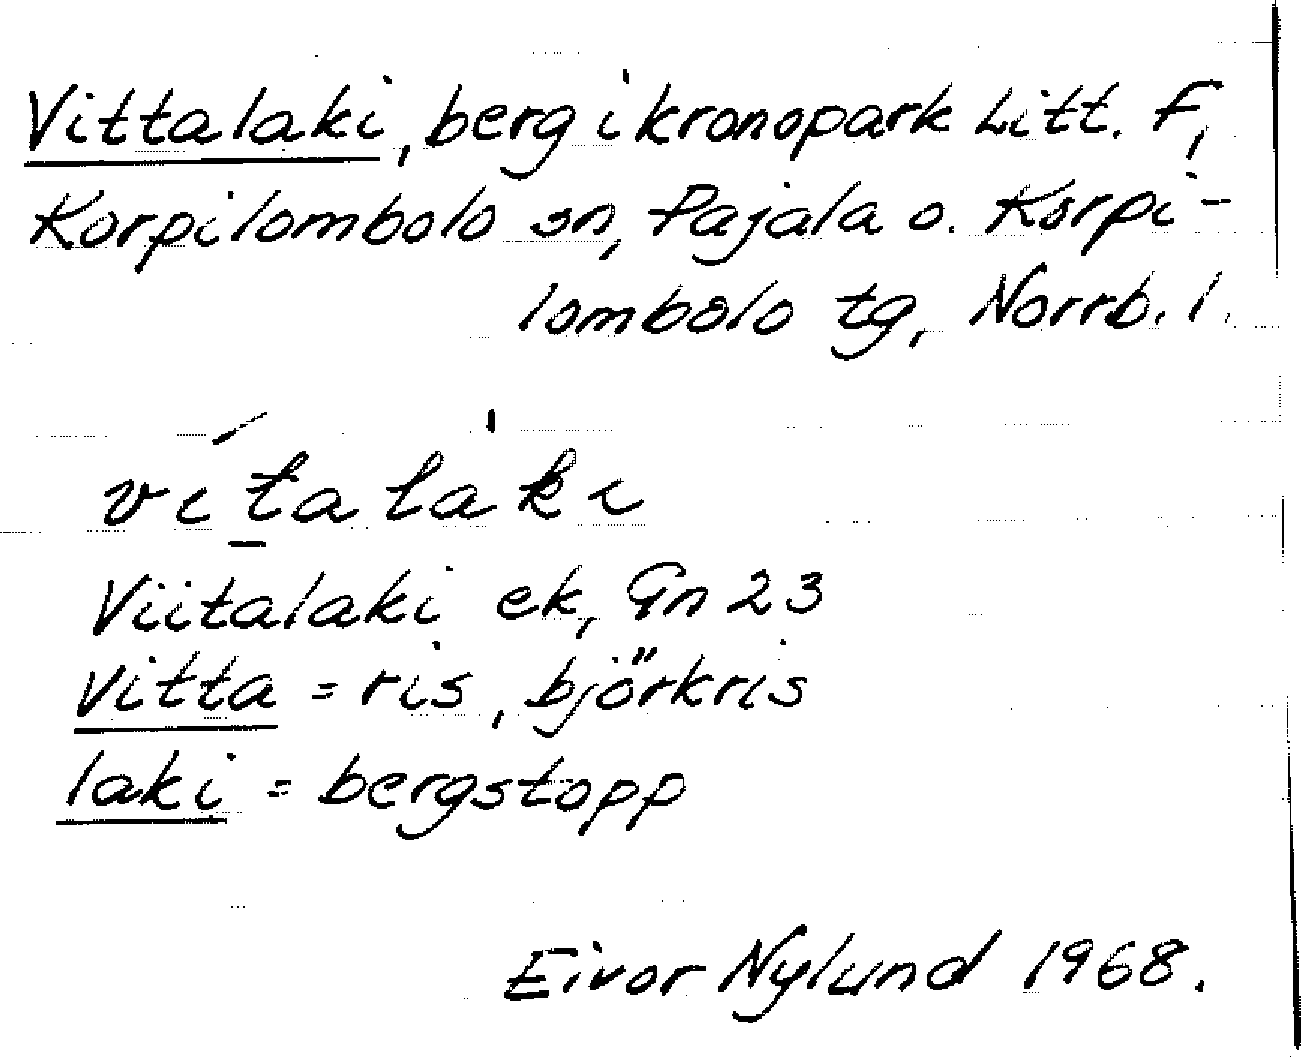 Vittalaki, berg i kronopark Litt. F,
Korpilombolo sn, Pajala o. Korpi-
lombolo tg, Norrb. l.
vítalàki
Viitalaki ek, Gn 23
vitta = ris, björkris
laki = bergstopp
Eivor Nylund 1968.